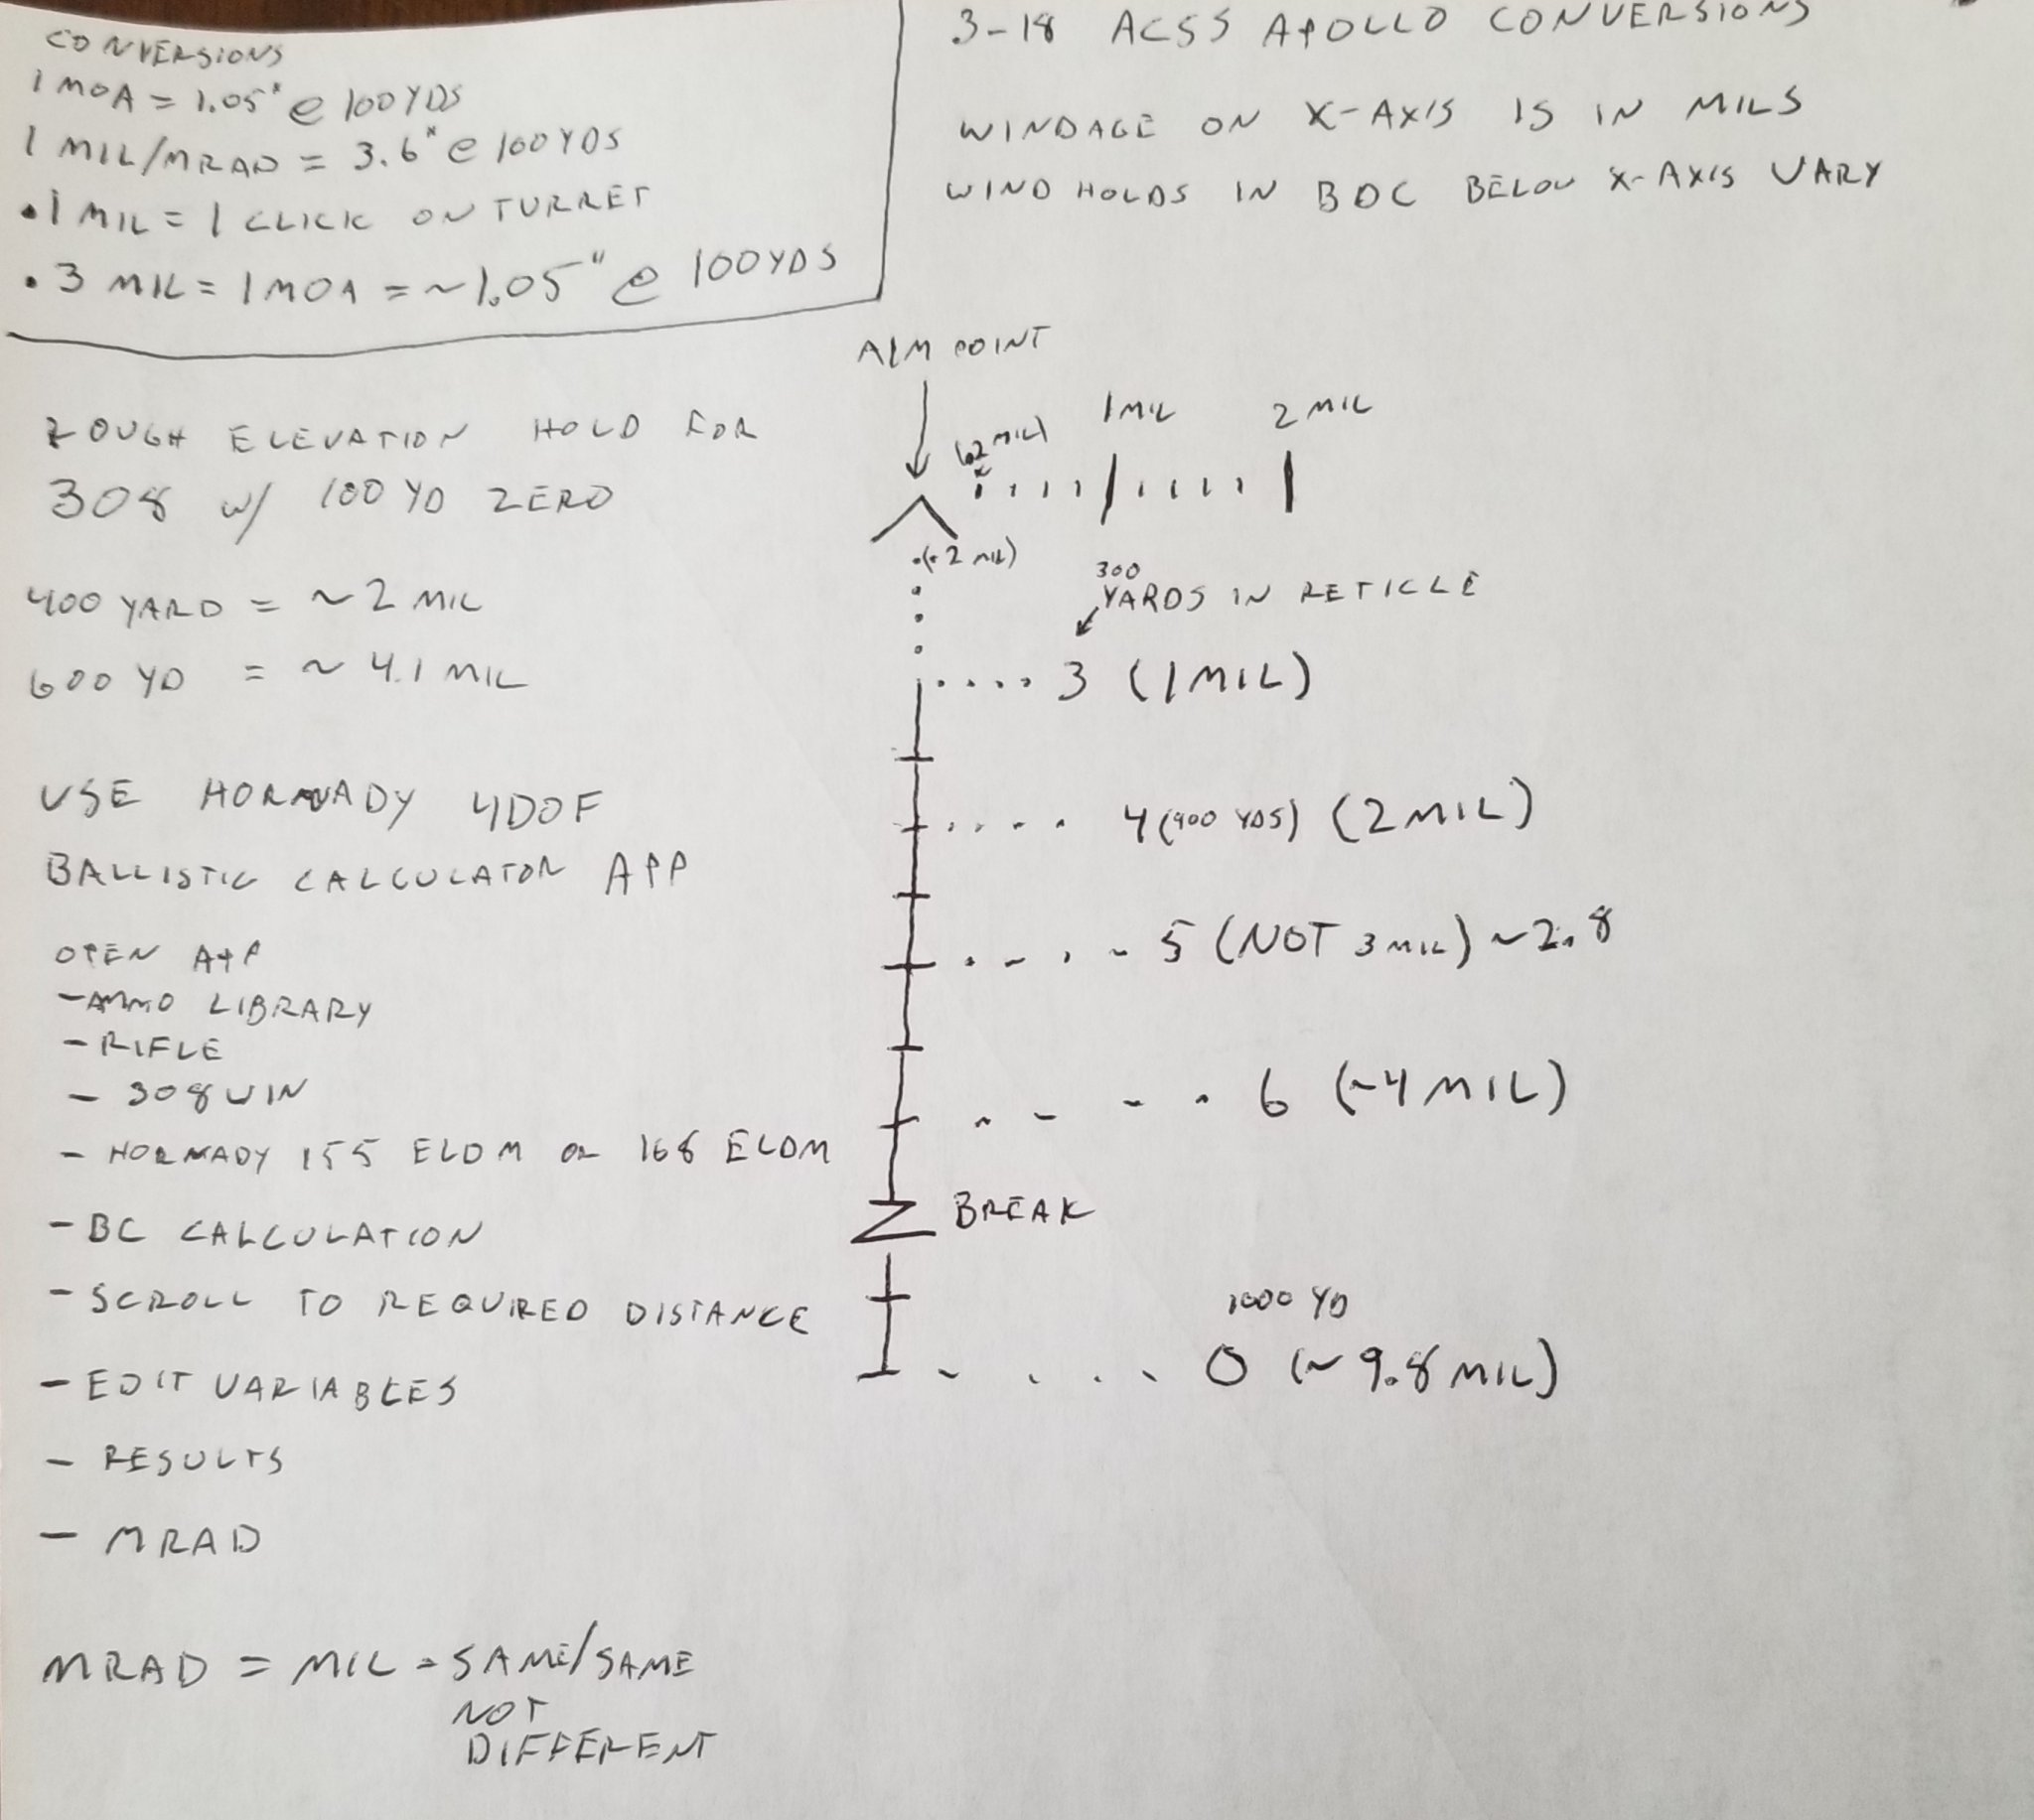 CONVERSIONS
1 MOA = 1.05" @ 100 YDS
1 MIL/MRAD = 3.6" @ 100 YDS
.1 MIL = 1 CLICK ON TURRET
.3 MIL = 1 MOA = ~1.05" @ 100 YDS
3-18 ACSS APOLLO CONVERSIONS
WINDAGE ON X-AXIS IS IN MILS
WIND HOLDS IN BDC BELOW X-AXIS VARY
ROUGH ELEVATION HOLD FOR
308 W/ 100 YD ZERO
400 YARD = ~2 MIL
600 YD = ~4.1 MIL
USE HORNADY 4DOF
BALLISTIC CALCULATOR APP
OPEN APP
- AMMO LIBRARY
- RIFLE
- 308 WIN
- HORNADY 155 ELDM OR 168 ELDM
- BC CALCULATION
- SCROLL TO REQUIRED DISTANCE
- EDIT VARIABLES
- RESULTS
- MRAD
MRAD = MIL = SAME/SAME
NOT
DIFFERENT
AIM POINT
(.2 MIL)
1 MIL
2 MIL
(.2 MIL)
300
YARDS IN RETICLE
3 (1 MIL)
4 (400 YDS) (2 MIL)
5 (NOT 3 MIL) ~2.8
6 (~4 MIL)
BREAK
1000 YD
0 (~9.8 MIL)